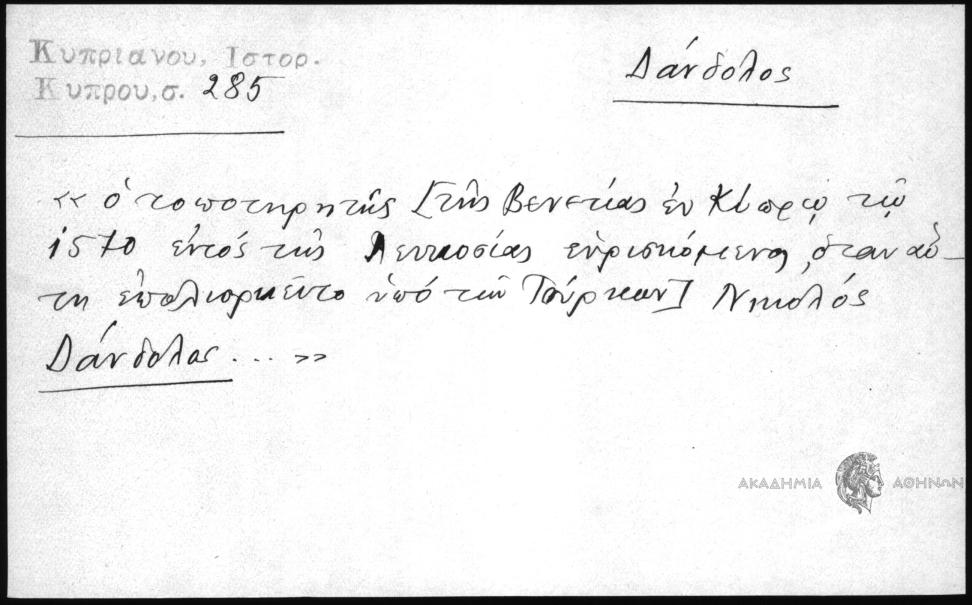 Κυπριανού, Ιστορ.
Κύπρου, σ. 285
Δάνδολος
« ὁ τοποτηρητής [τῆς Βενετίας ἐν Κύπρῳ τῷ
1570 ἐντός τῆς Λευκοσίας εὑρισκόμενος, ὅταν αὕ-
τη ἐπολιορκεῖτο ὑπό τῶν Τούρκων] Νικολός
Δάνδολος ... »
ΑΚΑΔΗΜΙΑ ΑΘΗΝΩΝ